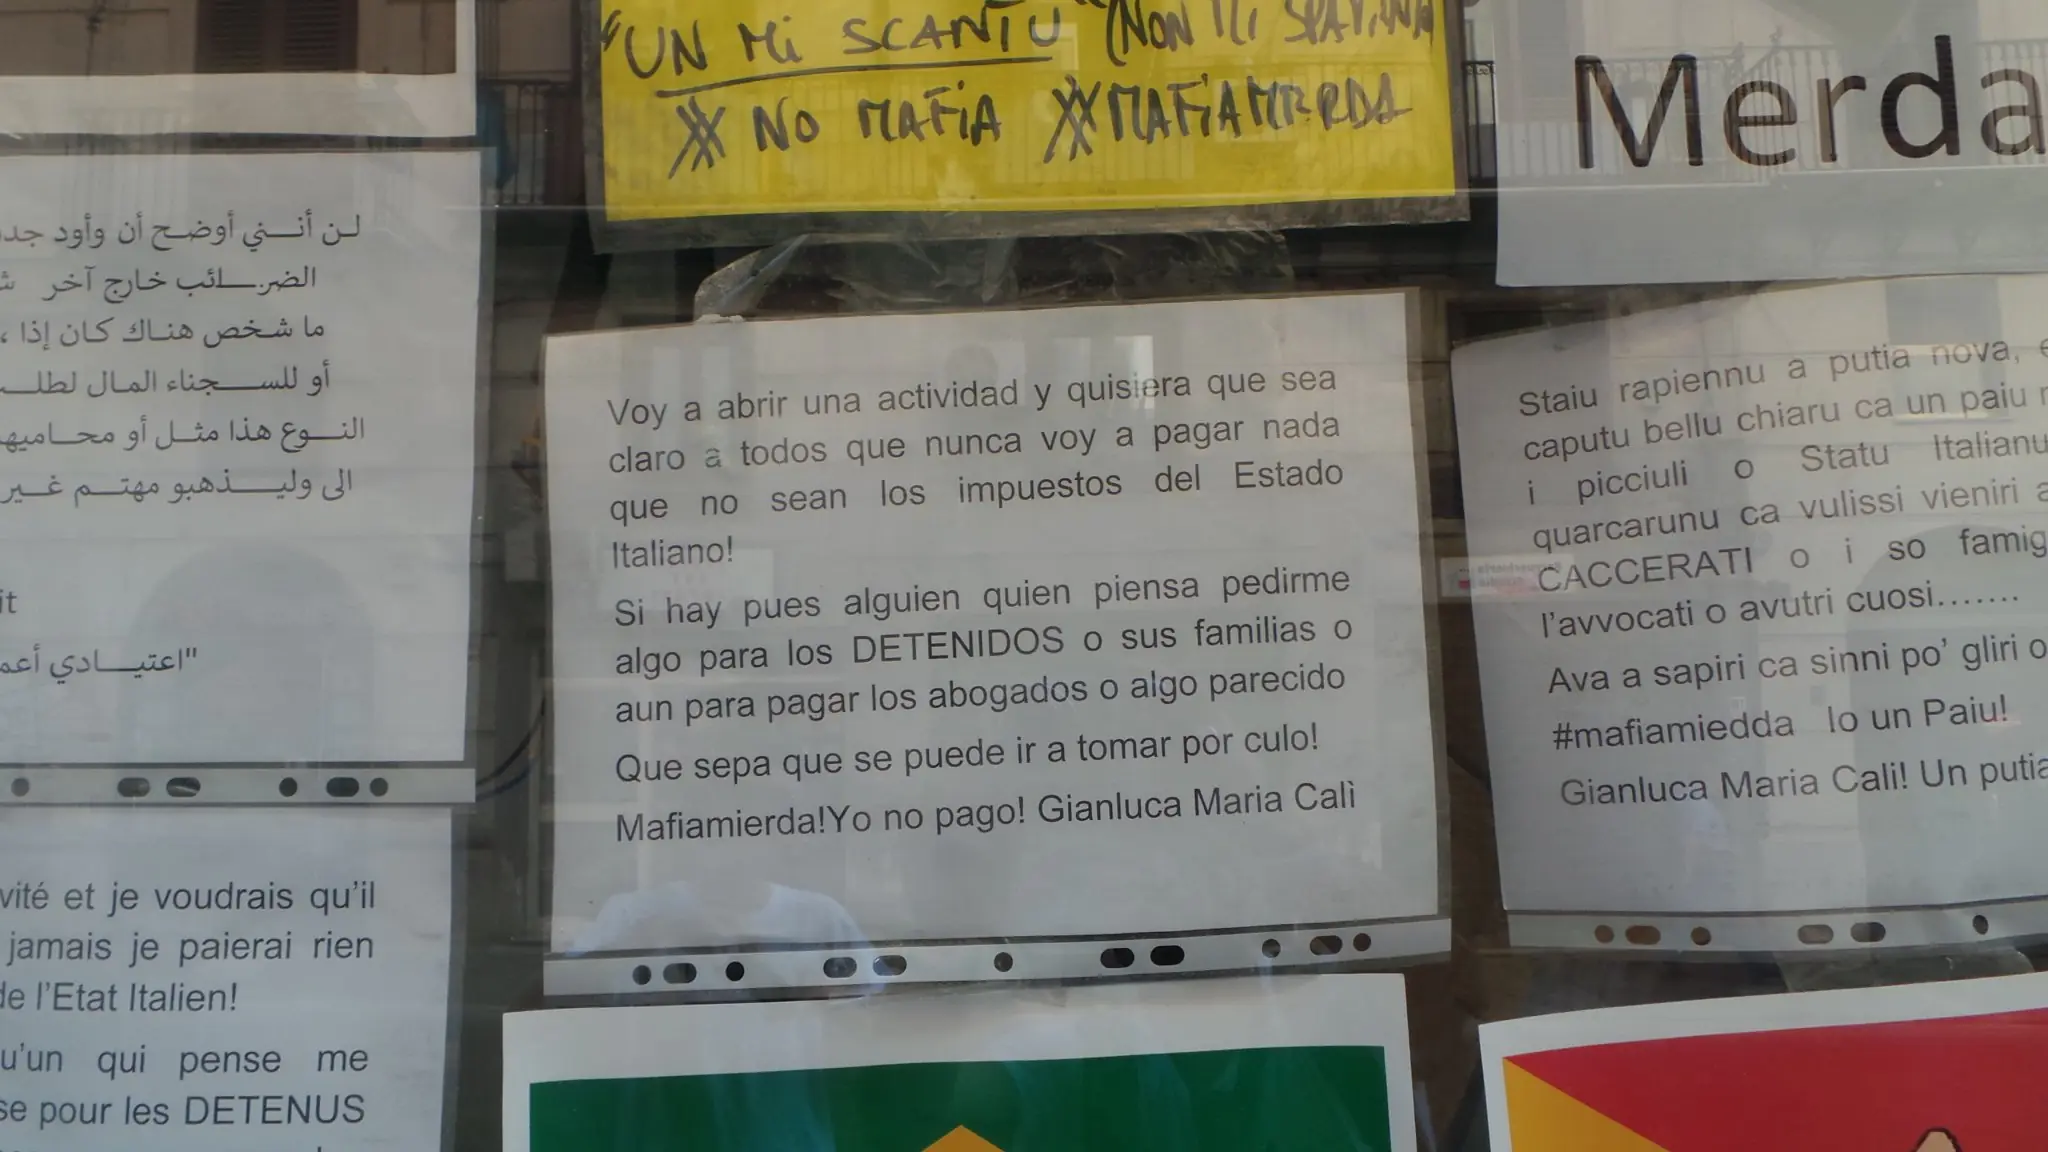 "UN Mi SCANTU" (NON MI SPAVENTA
# NO MAFiA # MAFiAMERDA
Merda
لن أنني أوضح أن وأود جد
الضرائب خارج آخر
ما شخص هناك كان إذا ،
أو للسجناء المال لطلب
النوع هذا مثل أو محاميه
الى وليذهبو مهتم غير
it
"اعتيادي أعم
Voy a abrir una actividad y quisiera que sea
claro a todos que nunca voy a pagar nada
que no sean los impuestos del Estado
Italiano!
Si hay pues alguien quien piensa pedirme
algo para los DETENIDOS o sus familias o
aun para pagar los abogados o algo parecido
Que sepa que se puede ir a tomar por culo!
Mafiamierda!Yo no pago! Gianluca Maria Calì
Staiu rapiennu a putia nova, e
caputu bellu chiaru ca un paiu r
i picciuli o Statu Italianu
quarcarunu ca vulissi vieniri a
CACCERATI o i so famig
l'avvocati o avutri cuosi.......
Ava a sapiri ca sinni po' gliri o
#mafiamiedda Io un Paiu!
Gianluca Maria Cali! Un putia
vité et je voudrais qu'il
jamais je paierai rien
de l'Etat Italien!
u'un qui pense me
se pour les DETENUS